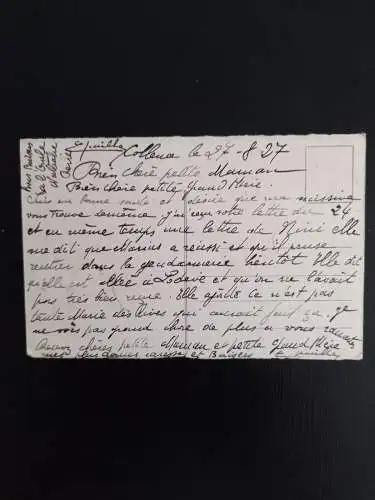 Collena le 27-8 27
Bien chère petite Maman
Bien chère petite Grand Mère
Suis en bonne santé et désire que ma missive
vous trouve de même j'ai reçu votre lettre du 24
et en même temps une lettre de Nini elle
me dit que Marius a réussi et qu'il pense
rentrer dans la gendarmerie bientôt Elle dit
qu'elle est allée à Lodève et qu'on ne l'avait
pas très bien reçue. Elle ajoute ce n'est pas
tante Marie des Rives qui aurait fait ça. Je
ne vois pas grand chose de plus à vous
chères petite Maman et petite Grand Mère
mes plus doux caresses et Baisers